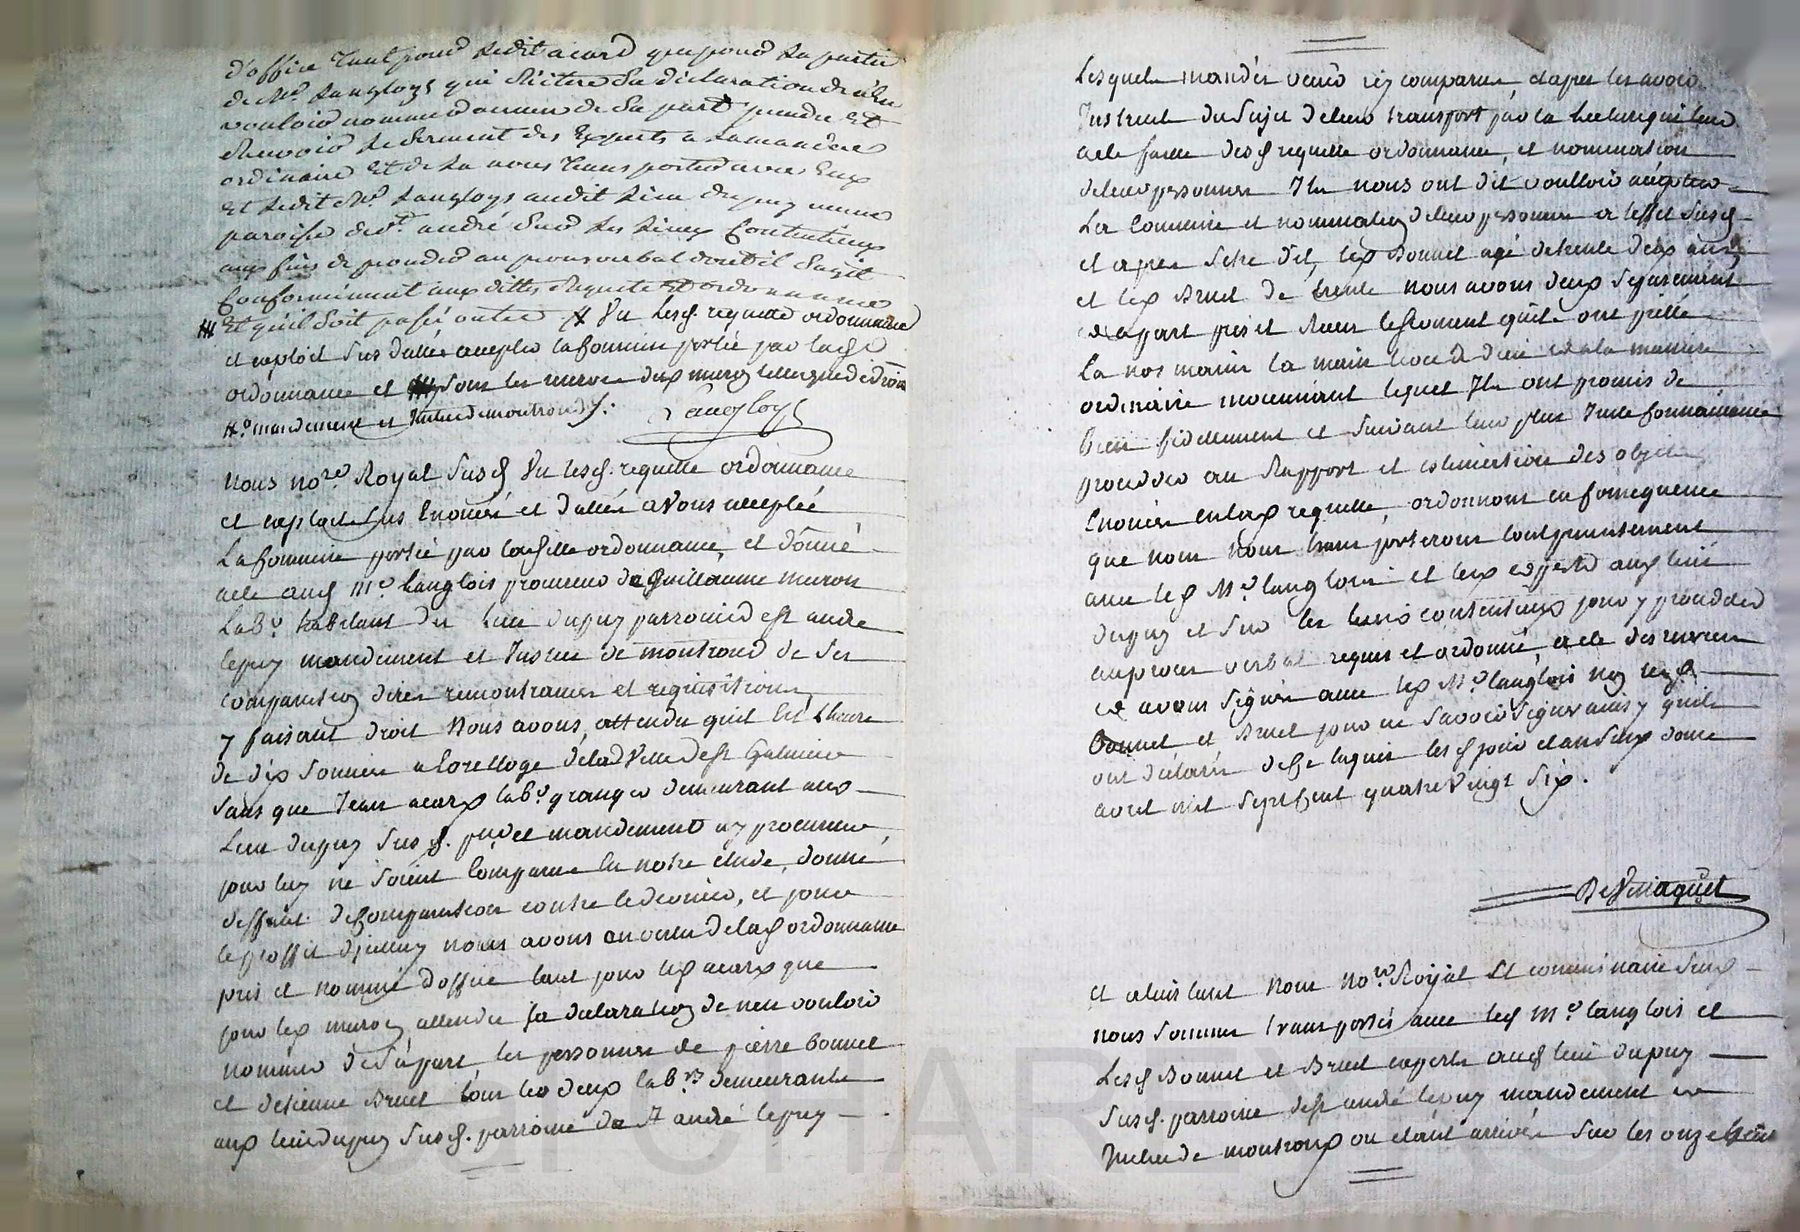 d'office tant pour ledit acard que pour la partie
de Me Langloys qui Réitere sa déclaration de n'en
vouloir nommer aucun de sa part prendre Et
Recevoir le serment des Experts a la maniere
ordinaire Et de la nous transporter avec Eux
Et ledit Me Langloys audit lieu Dupuy meme
paroisse de St andré Sur les lieux Contentieux
aux fins de proceder au procès verbal dont il s'agit
Conformément aux dittes Requete Et ordonnance
Et qu'il soit passé outre Vu lesd. requette ordonnance
et exploit sus dattés accepter la Commission portée par lad.
ordonnance et
mandement et Justice de montrond Langloys
Nous nore Royal Susd Vu lesd. requette ordonnance
et exploit sus Enoncés et dattés avons acceptée
La Commission portée par laditte ordonnance, et donné
acte aud Me Langlois procureur de Guillaume meron
Labr habitant du Lieu dupuy parroisse de St andré
lepuy mandement et Justice de montrond de Ses
comparution dires remontrances et requisitions
y faisant droit Nous avons, attendu qu'il Est Lheure
de dix sonnées a Lorelloge de lad Ville de St Galmier
sans que Jean acard labr granger demeurant aux
Lieu dupuy Sus d. mandement ny procureur
pour luy ne soient Comparus En notre étude, donné
deffaut de Comparution contre ledernier, et pour
le proffit d'jcelluy nous avons en vertu de lad ordonnance
pris et nommé d'office tant pour led acard que
pour led meron attendu sa declaration de n'en vouloir
nommer de sa part, les personnes de pierre bonnet
et d'etienne Bruel tous les deux labrs demeurants
aux lieu dupuy Susd. parroisse de St andré lepuy
Lesquels mandés venir ils comparus, et apres les avoir
Instruit du Sujet de leur transport par la Lecture qui leur
a ete faitte desd requette ordonnance, et nomination
de leur personnes Ils nous ont dit voulloir accepter
La Commission et nomination de leur personnes a leffet Susd
et apres s'etre dit, led Bonnet agé de trente deux ans
et led Bruel de trente nous avons deux Separement
et apart pris et Recu le serment qu'ils ont prêté
En nos mains la main levée a dieu et a la maniere
ordinaire moyennant lequel Ils ont promis de
Bien fidellement et suivant leur plus Juste Connaissance
proceder au Rapport et estimation des objets
Enoncés en lad requette, ordonnons en Consequence
que nous nous transporterons tout presentement
avec led Me Langlois et led experts aud lieu
dupuy et sur les lieux contentieux pour y proceder
au procès verbal requis et ordonné, acte des
et avons signés avec led Me Langlois non lesd
Bonnet et Bruel pour ne savoir signer ainsy qu'ils
ont declaré de ce enquis lesd jour et an Susd douze
avril mil Sept Cent quatre Vingt Six.
De Vinaquet
et a linstant Nous Nore Royal Et commissaire Susd
nous sommes transportés avec led Me Langlois et
Lesd Bonnet et Bruel experts aud lieu dupuy
Susd. parroisse de St andré lepuy mandement et
Justice de montrond ou etant arrivés Sur les onze heures